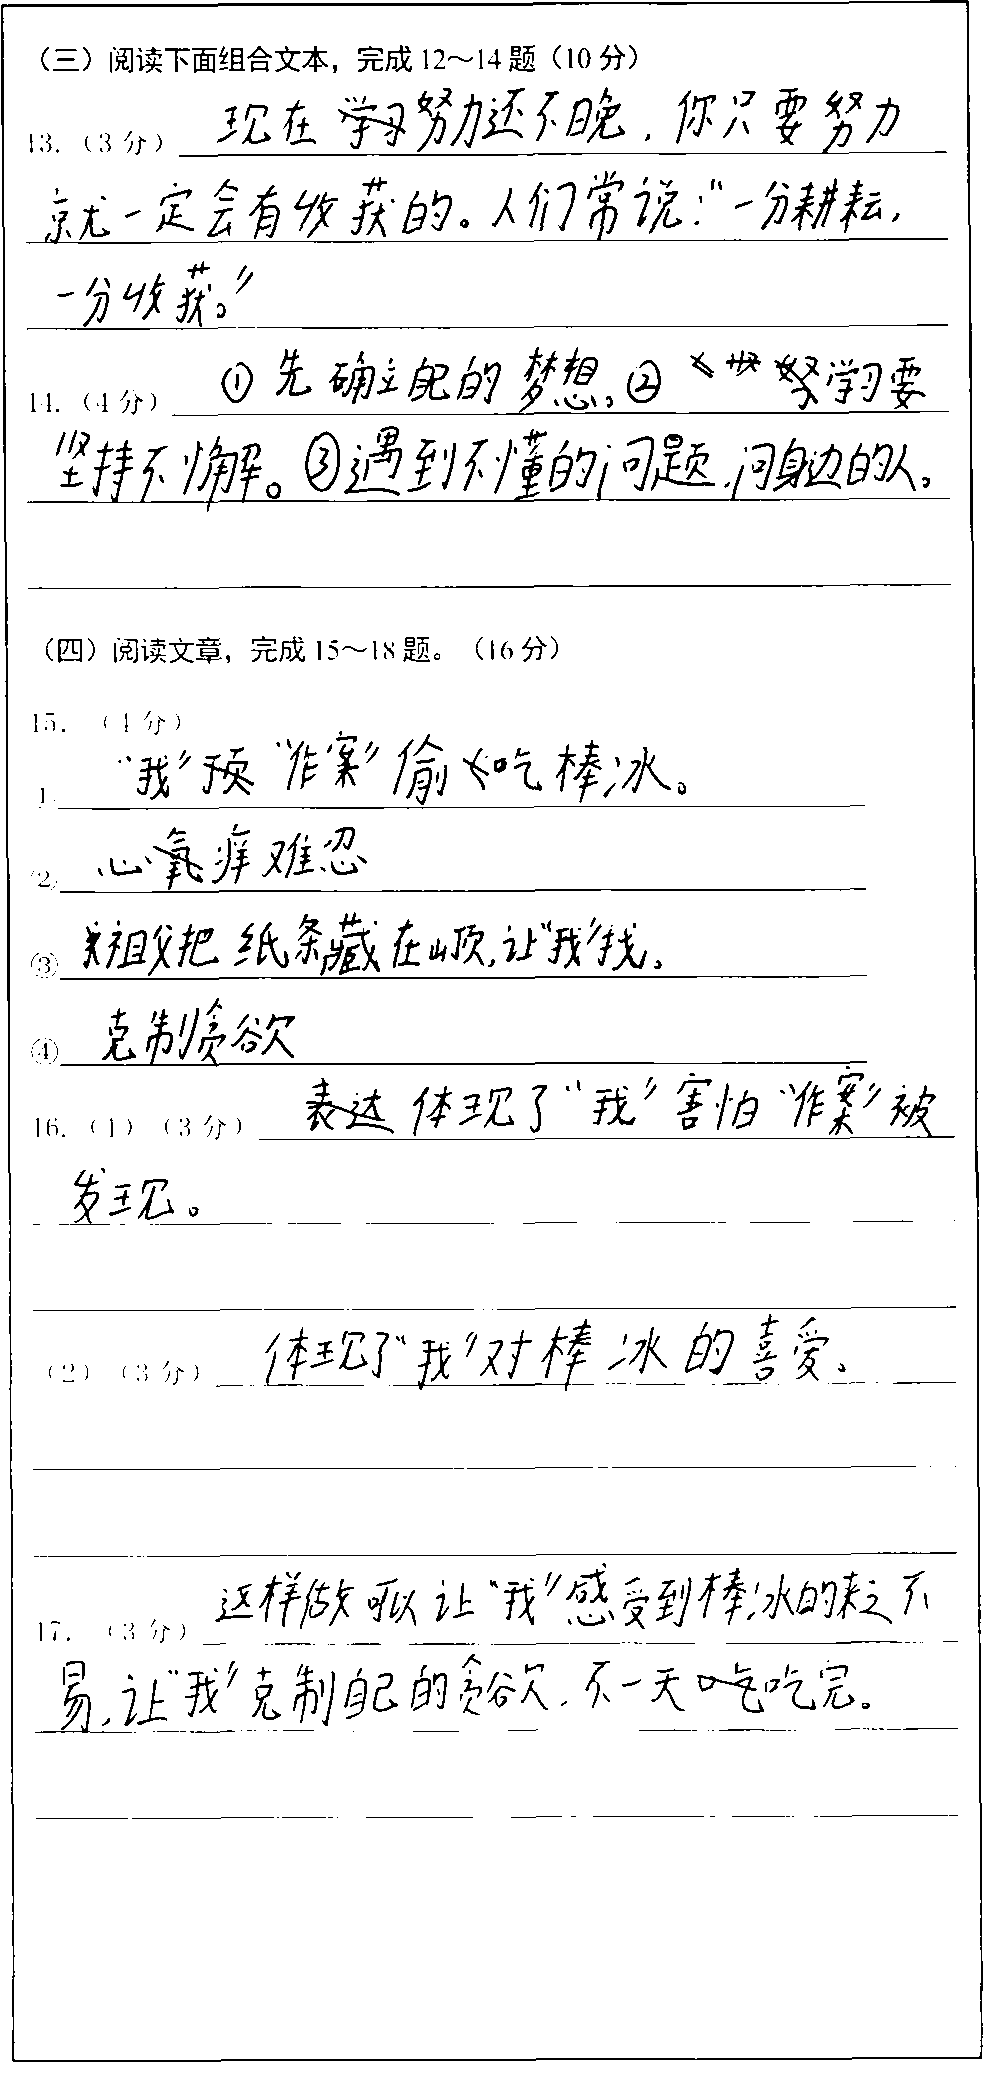 （三）阅读下面组合文本，完成12～14题（10分）
13.（3分） 现在努力还不晚，你只要努力
就一定会有收获的。人们常说：“一分耕耘，
一分收获。”
14.（4分） ①先确立自己的梦想。②学习要
坚持不懈。③遇到不懂的问题，问身边的人。
（四）阅读文章，完成15～18题。（16分）
15.（4分）
1. “我”预“作案”偷吃棒冰。
2. 心痒难忍
③ 祖父把纸条藏在山顶，让“我”找。
④ 克制贪欲
16.（1）（3分） 体现了“我”害怕“作案”被
发现。
（2）（3分） 体现了“我”对棒冰的喜爱。
17.（3分） 这样做可以让“我”感受到棒冰的来之不
易，让“我”克制自己的贪欲，不一天吃完。